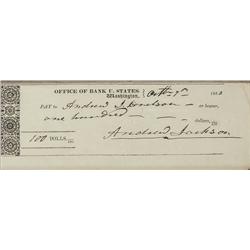 OFFICE OF BANK U. STATES,
Washington,
PAY to Andrew J. Donelson or bearer,
one hundred dollars,
100 DOLLS.
Andrew Jackson